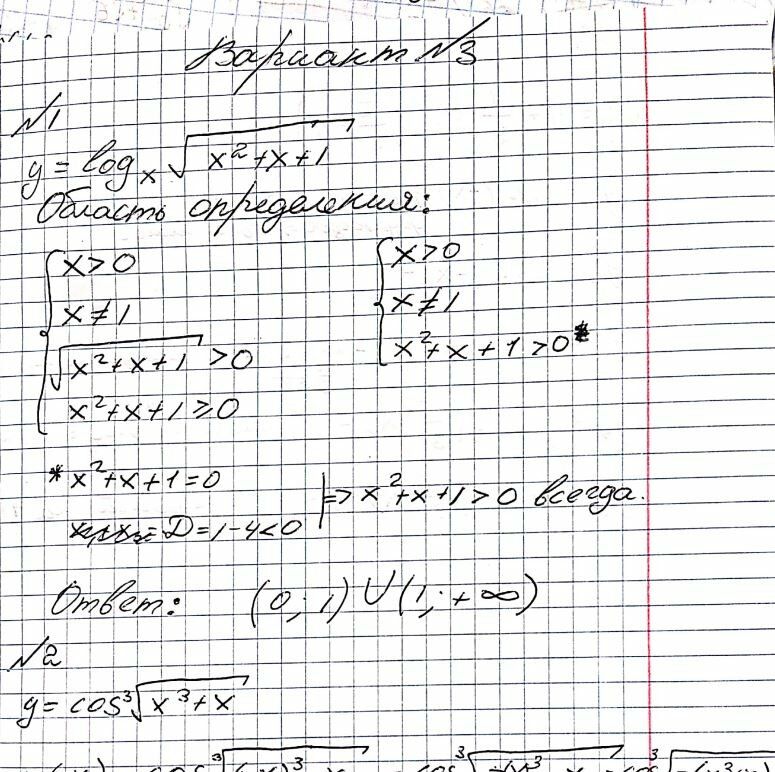 Вариант №3
№1
y = log_x √(x²+x+1)
Область определения:
{ x>0
x≠1
√(x²+x+1) >0
x²+x+1≥0
{ x>0
x≠1
x²+x+1>0*
* x²+x+1=0
D=1-4<0
|=> x²+x+1>0 всегда.
Ответ: (0; 1) ∪ (1; +∞)
№2
y= cos ³√(x³+x)